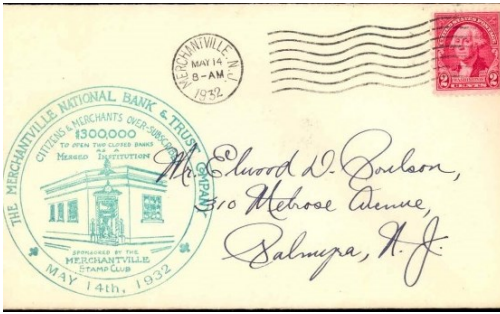 MERCHANTVILLE, N.J.
MAY 14
8-AM
1932
UNITED STATES POSTAGE
2 2
THE MERCHANTVILLE NATIONAL BANK & TRUST COMPANY
CITIZENS & MERCHANTS OVER-SUBSCRIBE
$300,000
TO OPEN TWO CLOSED BANKS
AS A
MERGED INSTITUTION
SPONSORED BY THE
MERCHANTVILLE
STAMP CLUB
MAY 14th, 1932
Mr. Elwood D. Poulson,
310 Melrose Avenue,
Palmyra, N. J.